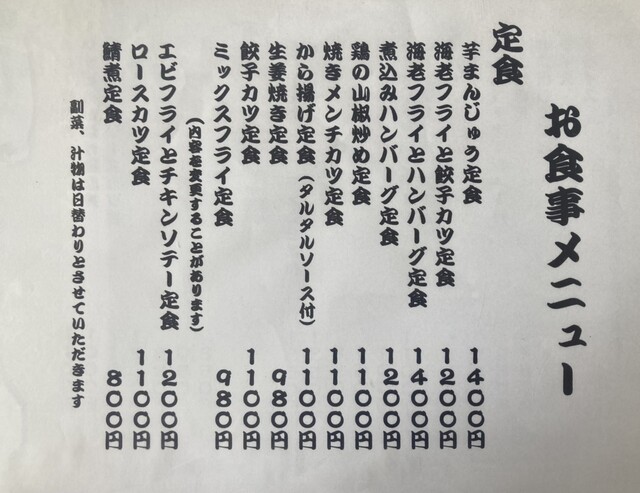 お食事メニュー
定食
芋まんじゅう定食 1400円
海老フライと餃子カツ定食 1200円
海老フライとハンバーグ定食 1400円
煮込みハンバーグ定食 1200円
鶏の山椒炒め定食 1100円
焼きメンチカツ定食 1100円
から揚げ定食(タルタルソース付) 1100円
生姜焼き定食 980円
餃子カツ定食 1100円
ミックスフライ定食 980円
(内容を変更することがあります)
エビフライとチキンソテー定食 1200円
ロースカツ定食 1100円
鯖煮定食 800円
副菜、汁物は日替わりとさせていただきます